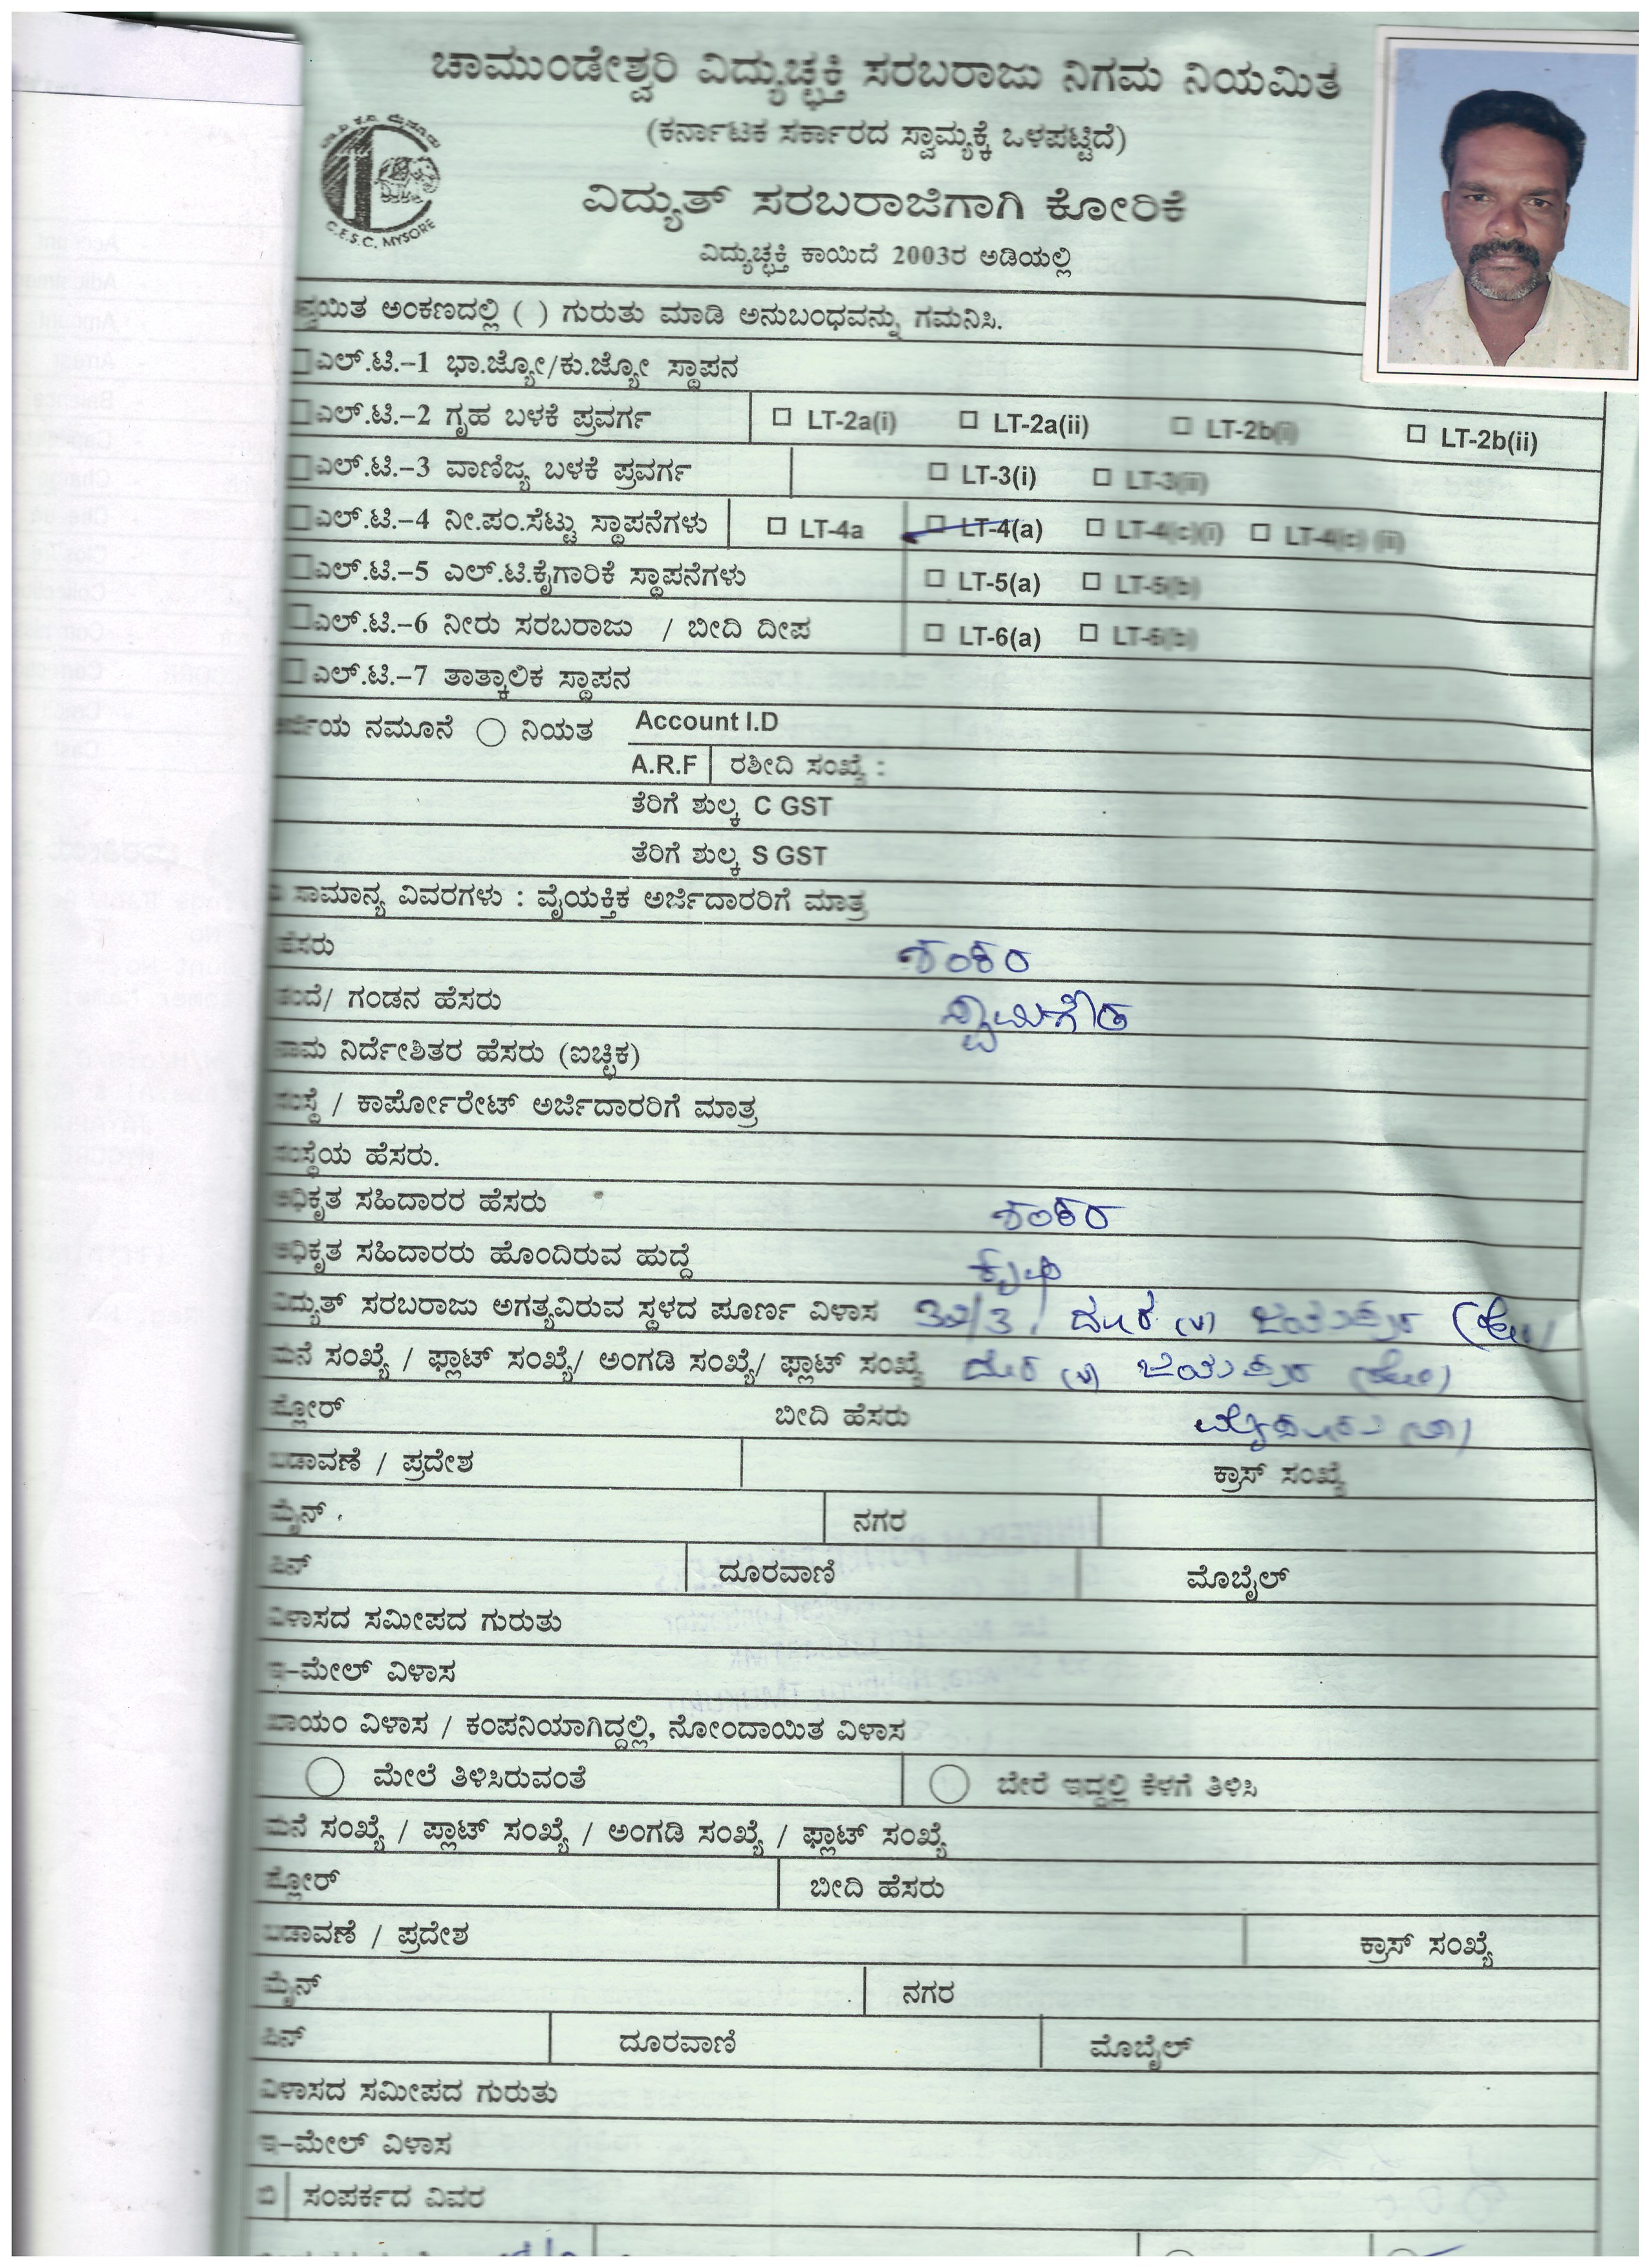 ಚಾಮುಂಡೇಶ್ವರಿ ವಿದ್ಯುಚ್ಛಕ್ತಿ ಸರಬರಾಜು ನಿಗಮ ನಿಯಮಿತ
(ಕರ್ನಾಟಕ ಸರ್ಕಾರದ ಸ್ವಾಮ್ಯಕ್ಕೆ ಒಳಪಟ್ಟಿದೆ)
C.E.S.C. MYSORE
ವಿದ್ಯುತ್ ಸರಬರಾಜಿಗಾಗಿ ಕೋರಿಕೆ
ವಿದ್ಯುಚ್ಛಕ್ತಿ ಕಾಯಿದೆ 2003ರ ಅಡಿಯಲ್ಲಿ
ಅಂಕಣದಲ್ಲಿ ( ) ಗುರುತು ಮಾಡಿ ಅನುಬಂಧವನ್ನು ಗಮನಿಸಿ.
ಎಲ್.ಟಿ.–1 ಭಾ.ಜ್ಯೋ/ಕು.ಜ್ಯೋ ಸ್ಥಾಪನ
ಎಲ್.ಟಿ.–2 ಗೃಹ ಬಳಕೆ ಪ್ರವರ್ಗ LT-2a(i) LT-2a(ii) LT-2b(i) LT-2b(ii)
ಎಲ್.ಟಿ.–3 ವಾಣಿಜ್ಯ ಬಳಕೆ ಪ್ರವರ್ಗ LT-3(i) LT-3(ii)
ಎಲ್.ಟಿ.–4 ನೀ.ಪಂ.ಸೆಟ್ಟು ಸ್ಥಾಪನೆಗಳು LT-4a LT-4(a) LT-4(c)(i) LT-4(c) (ii)
ಎಲ್.ಟಿ.–5 ಎಲ್.ಟಿ.ಕೈಗಾರಿಕೆ ಸ್ಥಾಪನೆಗಳು LT-5(a) LT-5(b)
ಎಲ್.ಟಿ.–6 ನೀರು ಸರಬರಾಜು / ಬೀದಿ ದೀಪ LT-6(a) LT-6(b)
ಎಲ್.ಟಿ.–7 ತಾತ್ಕಾಲಿಕ ಸ್ಥಾಪನ
ಅರ್ಜಿಯ ನಮೂನೆ ನಿಯತ Account I.D
A.R.F ರಶೀದಿ ಸಂಖ್ಯೆ :
ತೆರಿಗೆ ಶುಲ್ಕ C GST
ತೆರಿಗೆ ಶುಲ್ಕ S GST
ಸಾಮಾನ್ಯ ವಿವರಗಳು : ವೈಯಕ್ತಿಕ ಅರ್ಜಿದಾರರಿಗೆ ಮಾತ್ರ
ಹೆಸರು ಶಂಕರ
ತಂದೆ/ ಗಂಡನ ಹೆಸರು ಸ್ವಾಮಿಗೌಡ
ನಾಮ ನಿರ್ದೇಶಿತರ ಹೆಸರು (ಐಚ್ಛಿಕ)
ಸಂಸ್ಥೆ / ಕಾರ್ಪೋರೇಟ್ ಅರ್ಜಿದಾರರಿಗೆ ಮಾತ್ರ
ಸಂಸ್ಥೆಯ ಹೆಸರು.
ಅಧಿಕೃತ ಸಹಿದಾರರ ಹೆಸರು ಶಂಕರ
ಅಧಿಕೃತ ಸಹಿದಾರರು ಹೊಂದಿರುವ ಹುದ್ದೆ ಕೃಷಿ
ವಿದ್ಯುತ್ ಸರಬರಾಜು ಅಗತ್ಯವಿರುವ ಸ್ಥಳದ ಪೂರ್ಣ ವಿಳಾಸ
ಮನೆ ಸಂಖ್ಯೆ / ಫ್ಲಾಟ್ ಸಂಖ್ಯೆ/ ಅಂಗಡಿ ಸಂಖ್ಯೆ/ ಫ್ಲಾಟ್ ಸಂಖ್ಯೆ
ಫ್ಲೋರ್ ಬೀದಿ ಹೆಸರು
ಬಡಾವಣೆ / ಪ್ರದೇಶ ಕ್ರಾಸ್ ಸಂಖ್ಯೆ
ಮೈನ್ ನಗರ
ಪಿನ್ ದೂರವಾಣಿ ಮೊಬೈಲ್
ವಿಳಾಸದ ಸಮೀಪದ ಗುರುತು
ಇ–ಮೇಲ್ ವಿಳಾಸ
ಖಾಯಂ ವಿಳಾಸ / ಕಂಪನಿಯಾಗಿದ್ದಲ್ಲಿ, ನೋಂದಾಯಿತ ವಿಳಾಸ
ಮೇಲೆ ತಿಳಿಸಿರುವಂತೆ ಬೇರೆ ಇದ್ದಲ್ಲಿ ಕೆಳಗೆ ತಿಳಿಸಿ
ಮನೆ ಸಂಖ್ಯೆ / ಪ್ಲಾಟ್ ಸಂಖ್ಯೆ / ಅಂಗಡಿ ಸಂಖ್ಯೆ / ಫ್ಲಾಟ್ ಸಂಖ್ಯೆ
ಫ್ಲೋರ್ ಬೀದಿ ಹೆಸರು
ಬಡಾವಣೆ / ಪ್ರದೇಶ ಕ್ರಾಸ್ ಸಂಖ್ಯೆ
ಮೈನ್ ನಗರ
ಪಿನ್ ದೂರವಾಣಿ ಮೊಬೈಲ್
ವಿಳಾಸದ ಸಮೀಪದ ಗುರುತು
ಇ–ಮೇಲ್ ವಿಳಾಸ
ಬಿ ಸಂಪರ್ಕದ ವಿವರ